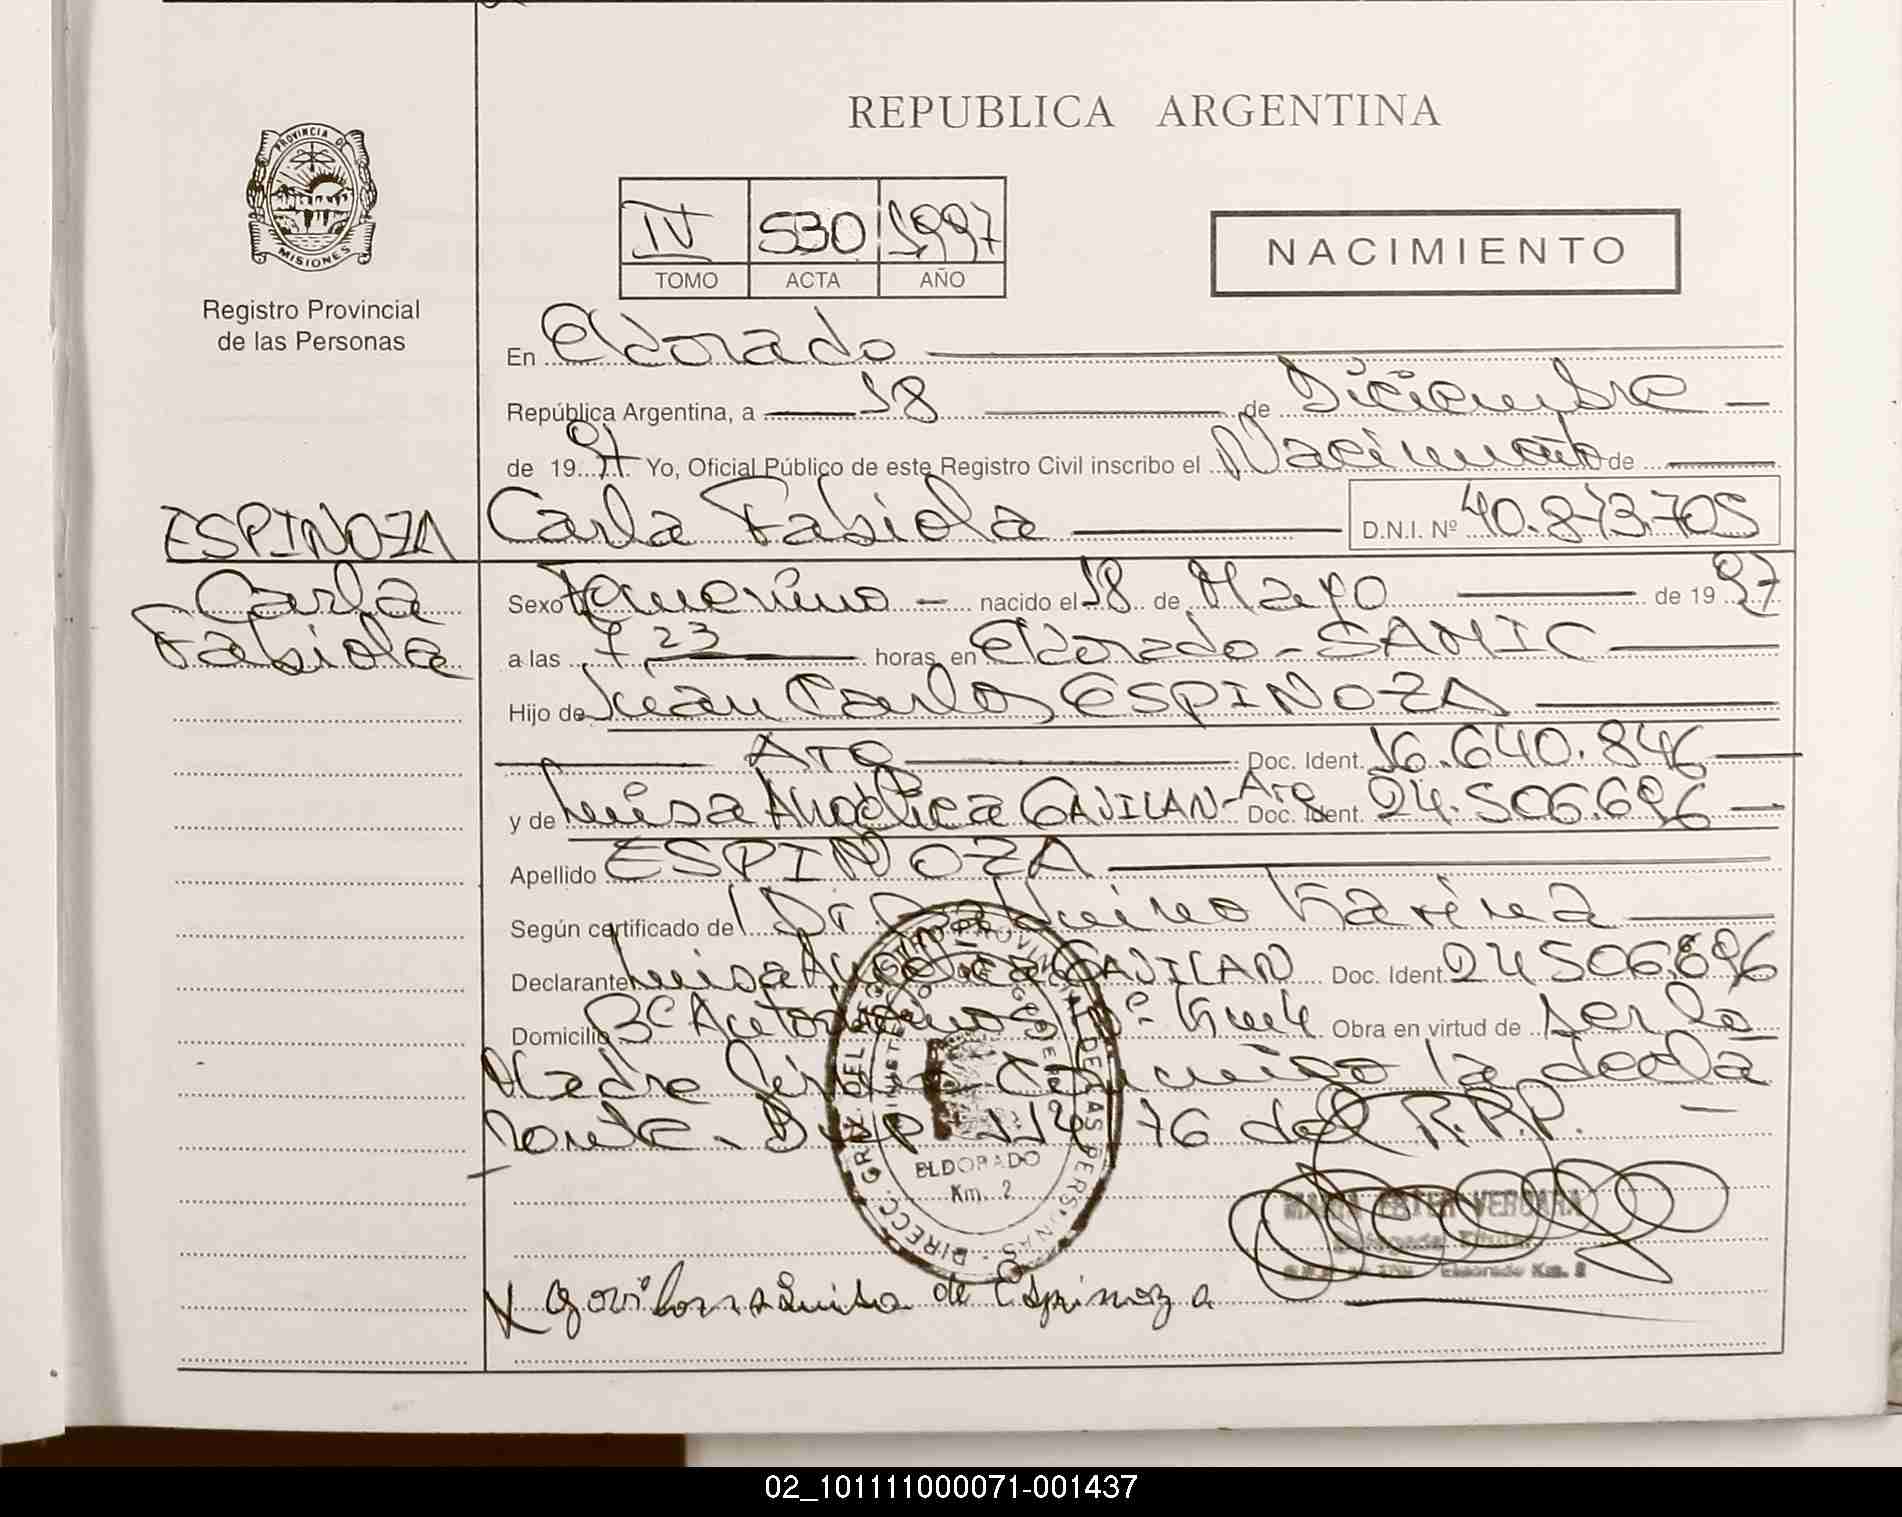 REPUBLICA ARGENTINA
PROVINCIA DE MISIONES
Registro Provincial
de las Personas
IV 530 1997
TOMO ACTA AÑO
NACIMIENTO
En Eldorado
República Argentina, a 18 de Diciembre
de 1997. Yo, Oficial Público de este Registro Civil inscribo el Nacimiento de
ESPINOZA
Carla Fabiola D.N.I. Nº 40.873.705
Carla
Fabiola
Sexo Femenino - nacido el 18 de Mayo de 1997
a las 7,23 horas, en Eldorado - SAMIC
Hijo de Juan Carlos ESPINOZA
Arg Doc. Ident. 16.640.846
y de Luisa Angélica GAVILAN - Arg Doc. Ident. 24.506.696
Apellido ESPINOZA
Según certificado de Dr. Karina
Declarante Luisa Angélica GAVILAN Doc. Ident. 24506.696
Domicilio Bº Nº Obra en virtud de ser la
Madre la decla
rante. Disp 114/76 del R.P.P.
DIRECC. GRAL. DEL REGISTRO PROVINCIAL DE LAS PERSONAS
MINISTERIO DE GOBIERNO
ELDORADO
Km. 2
MARIA ESTER VERGARA
Delegada Titular
Eldorado Km. 2
X Luisa de Espinoza
02_101111000071-001437